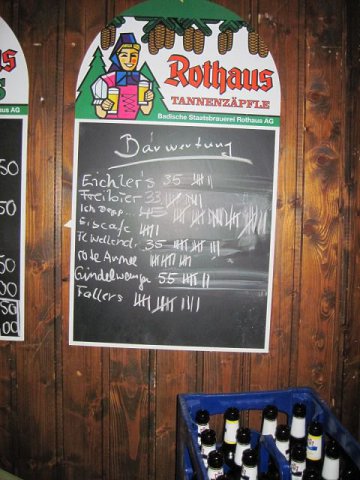 Rothaus
TANNENZÄPFLE
Badische Staatsbrauerei Rothaus AG
us
S
othaus AG
Bärwertung
Eichler's 35
Freibier 33
Ich Depp... 45
Eiscafe
35
rote Armee
Gündelwanger 55
Fallers
50
50
50
00
50
00